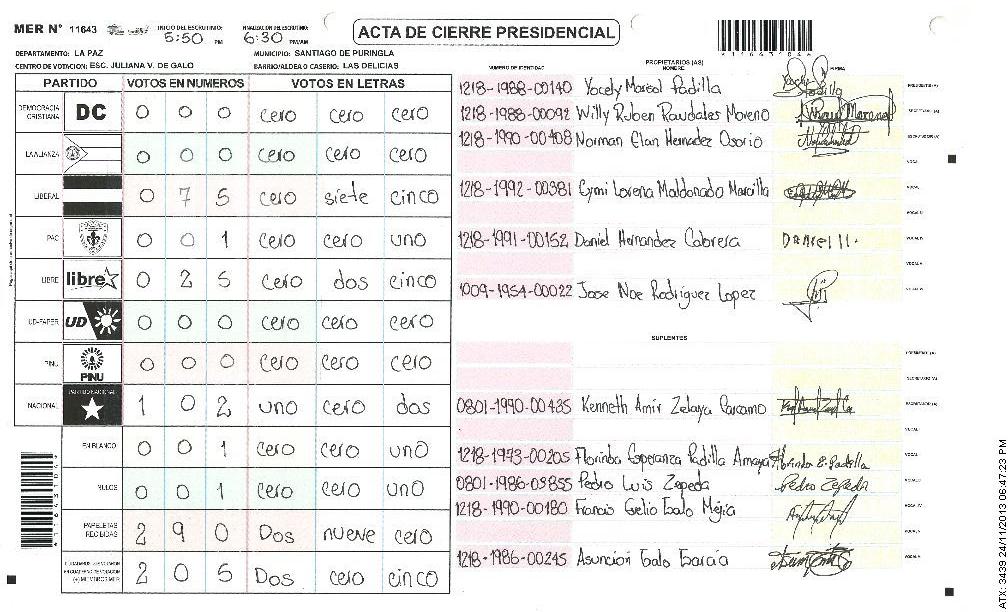 MER N° 11643
INICIO DEL ESCRUTINIO: 5:50 PM
FINALIZACIÓN DEL ESCRUTINIO: 6:30 PM/AM
ACTA DE CIERRE PRESIDENCIAL
DEPARTAMENTO: LA PAZ
MUNICIPIO: SANTIAGO DE PURINGLA
CENTRO DE VOTACION: ESC. JULIANA V. DE GALO
BARRIO/ALDEA O CASERIO: LAS DELICIAS
PARTIDO VOTOS EN NUMEROS VOTOS EN LETRAS
DEMOCRACIA CRISTIANA DC 0 0 0 cero cero cero
LA ALIANZA 0 0 0 cero cero cero
LIBERAL 0 7 5 cero siete cinco
PAC 0 0 1 cero cero uno
LIBRE libre 0 2 5 cero dos cinco
UD-FAPER UD 0 0 0 cero cero cero
PINU PINU 0 0 0 cero cero cero
NACIONAL PARTIDO NACIONAL 1 0 2 uno cero dos
EN BLANCO 0 0 1 cero cero uno
NULOS 0 0 1 cero cero uno
PAPELETAS RECIBIDAS 2 9 0 Dos nueve cero
2 0 5 Dos cero cinco
PROPIETARIOS (AS)
NUMERO DE IDENTIDAD NOMBRE FIRMA
1218-1988-00140 Yocely Marisol Padilla PRESIDENTE (A)
1218-1988-00092 Willy Ruben Raudales Moreno SECRETARIO (A)
1218-1990-00408 Norman Elan Hernandez Osorio ESCRUTADOR (A)
VOCAL I
1218-1992-00381 Lorena Maldonado VOCAL
VOCAL III
1218-1991-00152 Daniel Hernandez Cabrera Daniel H. VOCAL IV
VOCAL V
1009-1954-00022 Jose Noe Rodriguez Lopez VOCAL VI
SUPLENTES
PRESIDENTE (A)
SECRETARIO (A)
0801-1990-00485 Kenneth Amir Zelaya Carcamo ESCRUTADOR (A)
VOCAL I
1218-1973-00205 Florinda Esperanza Padilla Amaya Florinda E. Padilla VOCAL
0801-1986-09855 Pedro Luis Zepeda Pedro Zepeda
1218-1990-00180 Francis Galo Mejia VOCAL IV
VOCAL V
1218-1986-00245 Asuncion Galo Garcia VOCAL VI
ATX: 3439 24/11/2013 06:47:23 PM